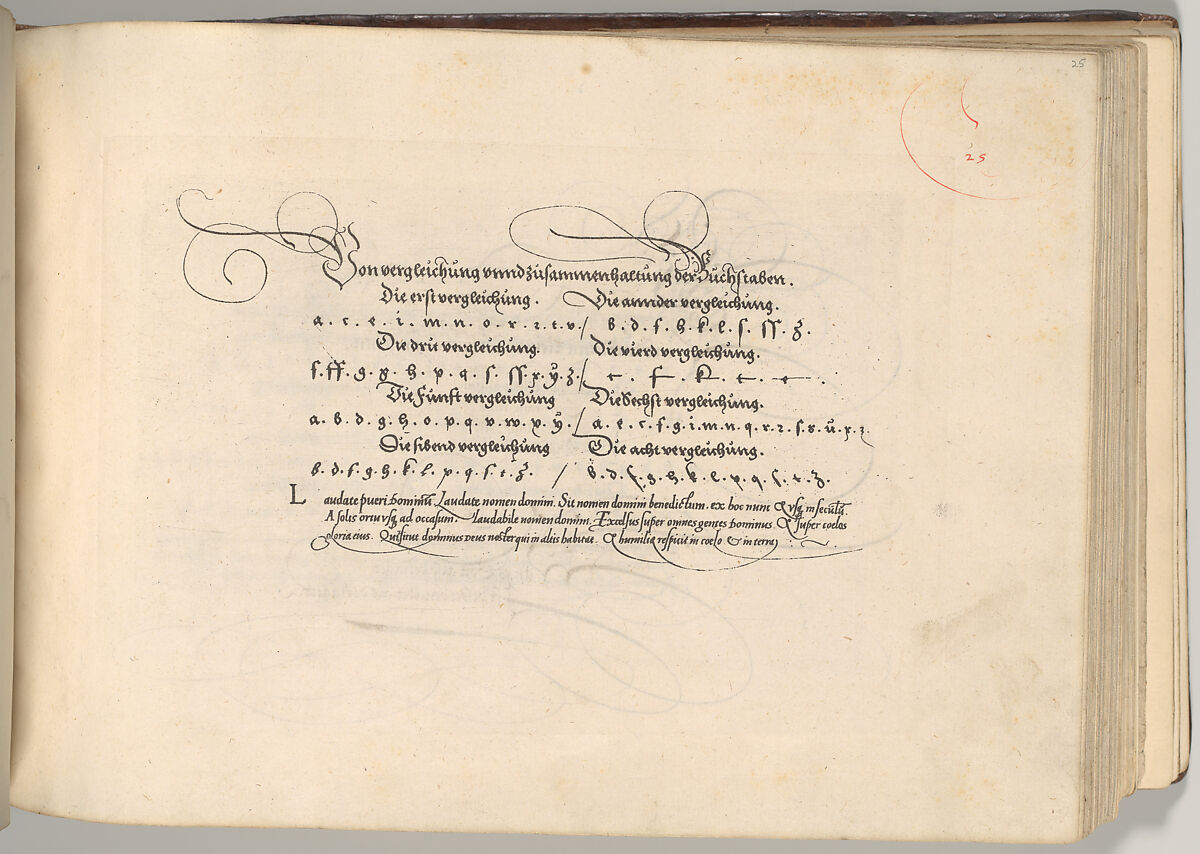 25
25
Von vergleichung vnnd zusammenhaltung der Buchstaben.
Die erst vergleichung. Die annder vergleichung.
a. c. e. i. m. n. o. r. z. t. v. / b. d. f. h. k. l. s. ss. z.
Die drit vergleichung. Die vierd vergleichung.
f. ff. g. g. h. p. q. s. ss. x. ÿ. z. / t. f. k. t. e.
Die Funft vergleichung Die Sechst vergleichung.
a. b. d. g. h. o. p. q. v. w. v. ÿ. / a. e. c. f. g. i. m. n. q. r. z. s. s. u. x. z
Die sibend vergleichung Die acht vergleichung.
b. d. f. g. h. k. l. p. q. s. t. z. / b. d. f. g. h. k. l. p. q. s. t. z.
Laudate pueri dominū. Laudate nomen domini. Sit nomen domini benedictum. ex hoc nunc & vsq in seculū.
A solis ortu vsq ad occasum. laudabile nomen domini. Excelsus super omnes gentes dominus. & super coelos
gloria eius. Quis sicut dominus deus noster qui in altis habitat. & humilia respicit in coelo & in terra